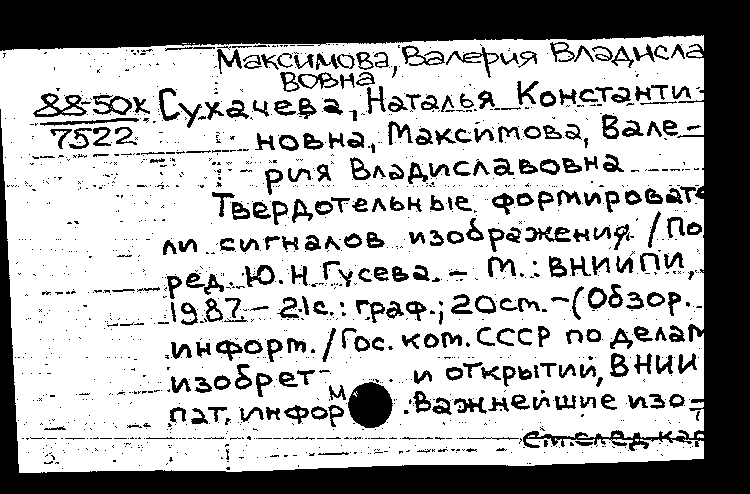 Максимова, Валерия Владисла
вовна
88-50к
7522
Сухачева, Наталья Константи-
новна, Максимова, Вале-
рия Владиславовна
Твердотельные формировате
ли сигналов изображения / По
ред. Ю.Н Гусева. – М.: ВНИИПИ,
1987 – 21с.: граф.; 20ст. – (Обзор.
информ. / Гос. ком. СССР по делам
изобрет и открытий, ВНИИ
пат. информ . Важнейшие изо-
ст. след. кар